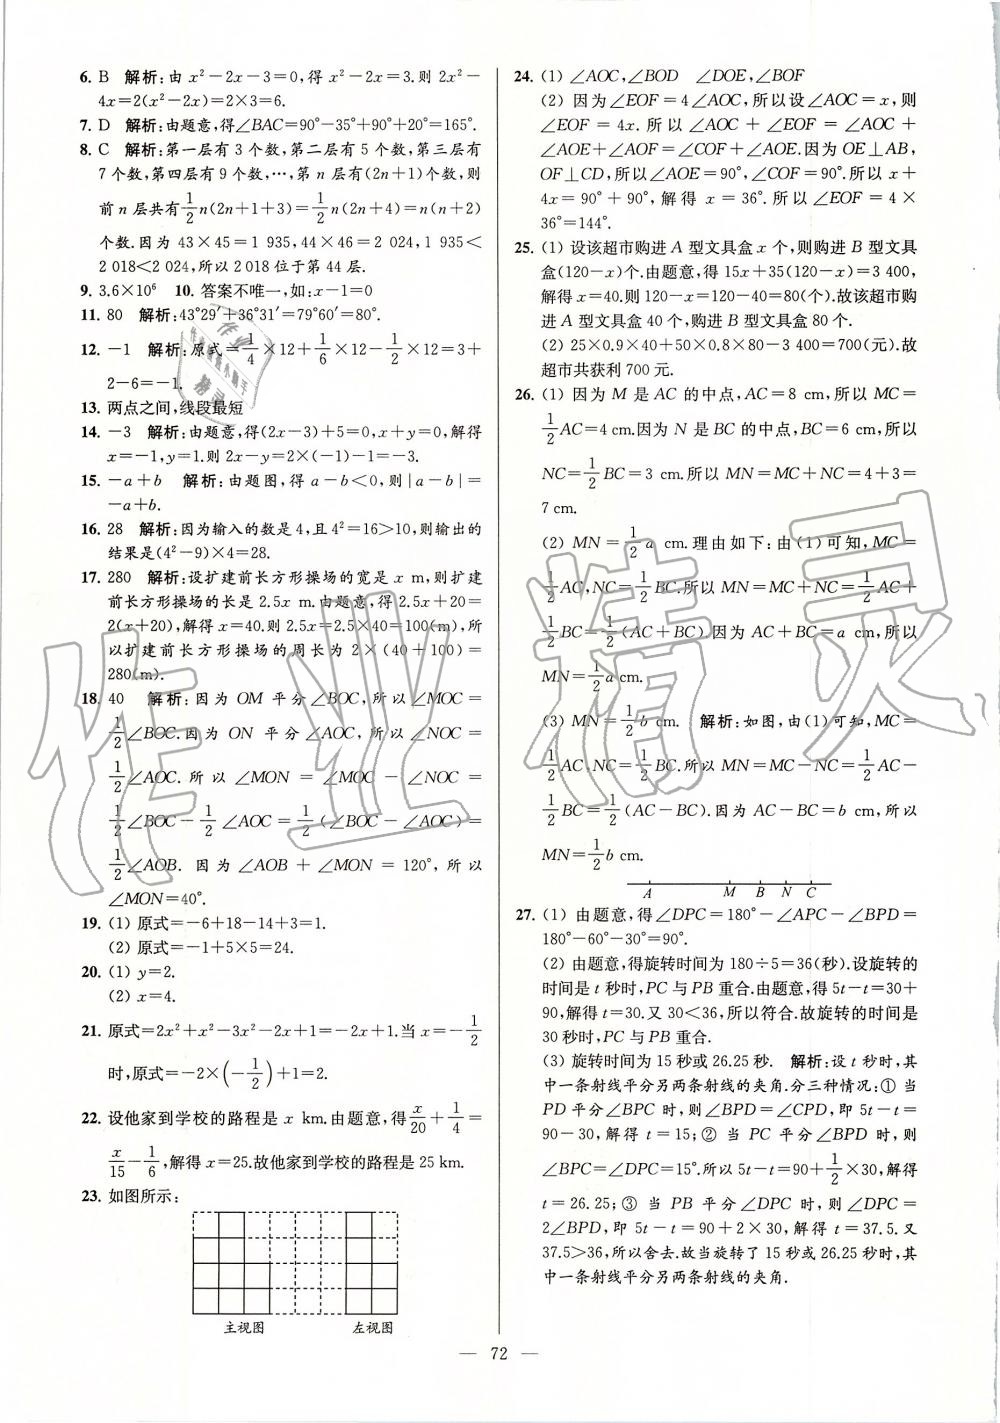 6. B 解析:由 x²-2x-3=0,得 x²-2x=3.则 2x²-
4x=2(x²-2x)=2×3=6.
7. D 解析:由题意,得∠BAC=90°-35°+90°+20°=165°.
8. C 解析:第一层有 3 个数,第二层有 5 个数,第三层有
7 个数,第四层有 9 个数,…,第 n 层有(2n+1)个数,则
前 n 层共有1/2n(2n+1+3)=1/2n(2n+4)=n(n+2)
个数.因为 43×45=1 935,44×46=2 024,1 935<
2 018<2 024,所以 2 018 位于第 44 层.
9. 3.6×10⁶ 10. 答案不唯一,如:x-1=0
11. 80 解析:43°29′+36°31′=79°60′=80°.
12. -1 解析:原式=1/4×12+1/6×12-1/2×12=3+
2-6=-1.
13. 两点之间,线段最短
14. -3 解析:由题意,得(2x-3)+5=0,x+y=0,解得
x=-1,y=1.则 2x-y=2×(-1)-1=-3.
15. -a+b 解析:由题图,得 a-b<0,则|a-b|=
-a+b.
16. 28 解析:因为输入的数是 4,且 4²=16>10,则输出的
结果是(4²-9)×4=28.
17. 280 解析:设扩建前长方形操场的宽是 x m,则扩建
前长方形操场的长是 2.5x m.由题意,得 2.5x+20=
2(x+20),解得 x=40.则 2.5x=2.5×40=100(m),所
以扩建前长方形操场的周长为 2×(40+100)=
280(m).
18. 40 解析:因为 OM 平分∠BOC,所以∠MOC=
1/2∠BOC.因为 ON 平分∠AOC,所以∠NOC=
1/2∠AOC.所以∠MON=∠MOC-∠NOC=
1/2∠BOC-1/2∠AOC=1/2(∠BOC-∠AOC)=
1/2∠AOB.因为∠AOB+∠MON=120°,所以
∠MON=40°.
19. (1) 原式=-6+18-14+3=1.
(2) 原式=-1+5×5=24.
20. (1) y=2.
(2) x=4.
21. 原式=2x²+x²-3x²-2x+1=-2x+1.当 x=-1/2
时,原式=-2×(-1/2)+1=2.
22. 设他家到学校的路程是 x km.由题意,得x/20+1/4=
x/15-1/6,解得 x=25.故他家到学校的路程是 25 km.
23. 如图所示:
主视图 左视图
24. (1) ∠AOC,∠BOD ∠DOE,∠BOF
(2) 因为∠EOF=4∠AOC,所以设∠AOC=x,则
∠EOF=4x.所以∠AOC+∠EOF=∠AOC+
∠AOE+∠AOF=∠COF+∠AOE.因为 OE⊥AB,
OF⊥CD,所以∠AOE=90°,∠COF=90°.所以 x+
4x=90°+90°,解得 x=36°.所以∠EOF=4×
36°=144°.
25. (1) 设该超市购进 A 型文具盒 x 个,则购进 B 型文具
盒(120-x)个.由题意,得 15x+35(120-x)=3 400,
解得 x=40.则 120-x=120-40=80(个).故该超市购
进 A 型文具盒 40 个,购进 B 型文具盒 80 个.
(2) 25×0.9×40+50×0.8×80-3 400=700(元).故
超市共获利 700 元.
26. (1) 因为 M 是 AC 的中点,AC=8 cm,所以 MC=
1/2AC=4 cm.因为 N 是 BC 的中点,BC=6 cm,所以
NC=1/2BC=3 cm.所以 MN=MC+NC=4+3=
7 cm.
(2) MN=1/2a cm.理由如下:由(1)可知,MC=
1/2AC,NC=1/2BC.所以 MN=MC+NC=1/2AC+
1/2BC=1/2(AC+BC).因为 AC+BC=a cm,所以
MN=1/2a cm.
(3) MN=1/2b cm. 解析:如图,由(1)可知,MC=
1/2AC,NC=1/2BC.所以 MN=MC-NC=1/2AC-
1/2BC=1/2(AC-BC).因为 AC-BC=b cm,所以
MN=1/2b cm.
A M B N C
27. (1) 由题意,得∠DPC=180°-∠APC-∠BPD=
180°-60°-30°=90°.
(2) 由题意,得旋转时间为 180÷5=36(秒).设旋转的
时间是 t 秒时,PC 与 PB 重合.由题意,得 5t-t=30+
90,解得 t=30.又 30<36,所以符合.故旋转的时间是
30 秒时,PC 与 PB 重合.
(3) 旋转时间为 15 秒或 26.25 秒. 解析:设 t 秒时,其
中一条射线平分另两条射线的夹角.分三种情况:① 当
PD 平分∠BPC 时,则∠BPD=∠CPD,即 5t-t=
90-30,解得 t=15;② 当 PC 平分∠BPD 时,则
∠BPC=∠DPC=15°.所以 5t-t=90+1/2×30,解得
t=26.25;③ 当 PB 平分∠DPC 时,则∠DPC=
2∠BPD,即 5t-t=90+2×30,解得 t=37.5.又
37.5>36,所以舍去.故当旋转了 15 秒或 26.25 秒时,其
中一条射线平分另两条射线的夹角.
— 72 —
作业精灵